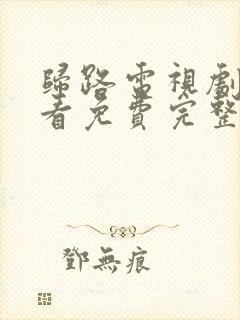 歸路電視劇
看免費完整
鄧無痕